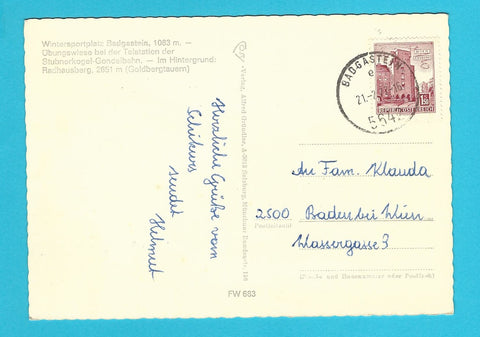 Wintersportplatz Badgastein, 1083 m. —
Übungswiese bei der Talstation der
Stubnerkogel-Gondelbahn. — Im Hintergrund:
Radhausberg, 2651 m (Goldbergtauern)
Herzliche Grüße vom
Schikurs
sendet
Helmut
Verlag Alfred Gründler, Salzburg, Münchner Bundesstr.
FW 683
BADGASTEIN
e
21.-2.
5640
REPUBLIK ÖSTERREICH
An Fam. Klauda
2500 Baden bei Wien
Postleitzahl
Wassergasse 3
(Straße und Hausnummer oder Postfach)